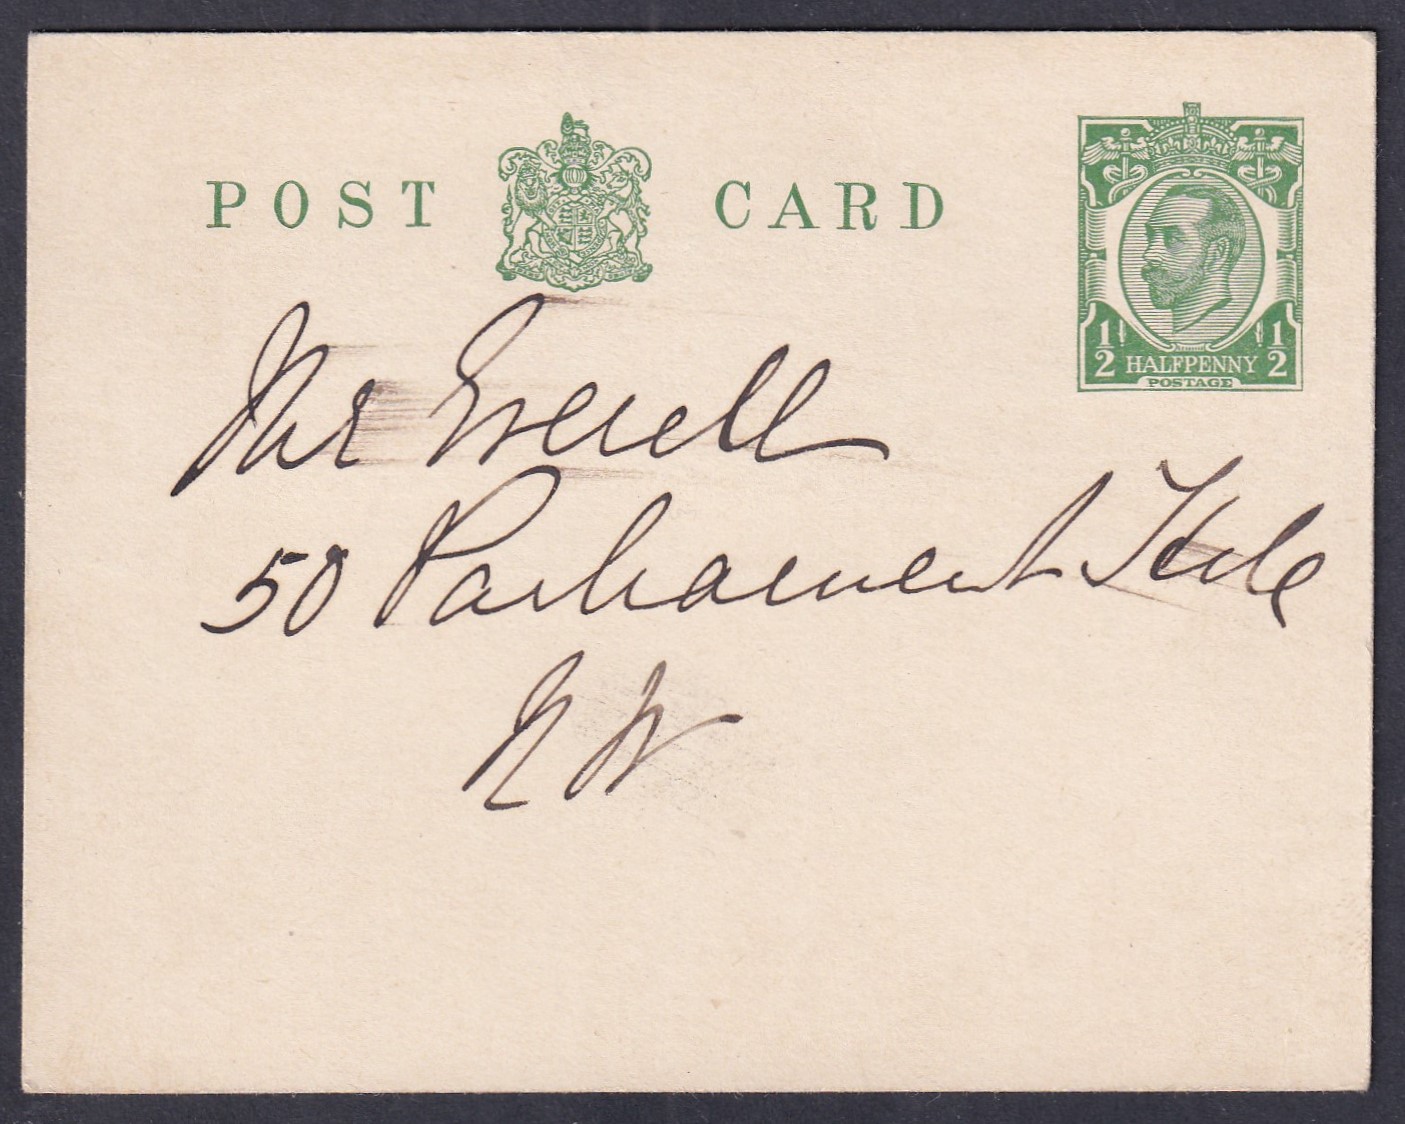 POST CARD
1/2 HALFPENNY 1/2
POSTAGE
Mr Everell
50 Parliament Hill
N W